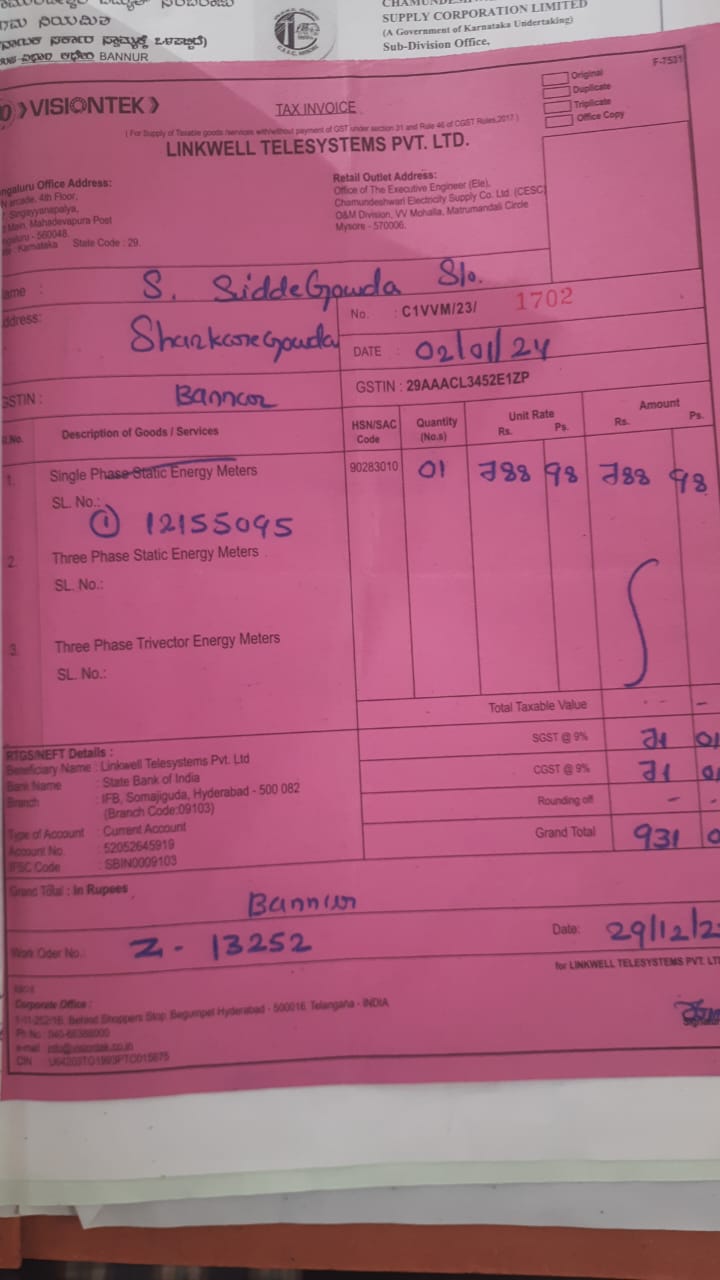 SUPPLY CORPORATION LIMITED
(A Government of Karnataka Undertaking)
Sub-Division Office,
BANNUR
F-7531
Original
Duplicate
Triplicate
Office Copy
VISIONTEK
TAX INVOICE
( For Supply of Taxable goods /services with/without payment of GST under section 31 and Rule 46 of CGST Rules,2017 )
LINKWELL TELESYSTEMS PVT. LTD.
Office Address:
4th Floor,
Singayyanapalya,
Main, Mahadevapura Post
560048.
Karnataka State Code : 29.
Retail Outlet Address:
Office of The Executive Engineer (Ele),
Chamundeshwari Electricity Supply Co. Ltd. (CESC)
O&M Division, VV Mohalla, Matrumandali Circle
Mysore - 570006.
S. SiddeGowda S/o.
ShankareGowda
Bannur
No. : C1VVM/23/ 1702
DATE : 02/01/24
GSTIN : 29AAACL3452E1ZP
Description of Goods / Services HSN/SAC Code Quantity (No.s) Unit Rate Rs. Ps. Amount Rs. Ps.
1. Single Phase Static Energy Meters 90283010 01 788 98 788 98
SL. No.:
① 12155095
2. Three Phase Static Energy Meters
SL. No.:
3. Three Phase Trivector Energy Meters
SL. No.:
Total Taxable Value - - -
SGST @ 9% 71 01
CGST @ 9% 71 01
Rounding off - -
Grand Total 931
RTGS/NEFT Details :
Beneficiary Name : Linkwell Telesystems Pvt. Ltd
Bank Name : State Bank of India
Branch : IFB, Somajiguda, Hyderabad - 500 082
(Branch Code:09103)
Type of Account : Current Account
Account No. : 52052645919
IFSC Code : SBIN0009103
Grand Total : In Rupees
Bannur
Work Oder No.: Z - 13252
Date: 29/12/2
for LINKWELL TELESYSTEMS PVT. LT
Corporate Office :
Behind Shoppers Stop, Begumpet Hyderabad - 500016. Telangana - INDIA
Ph No : 040-66388000
e-mail : info@visiontek.co.in